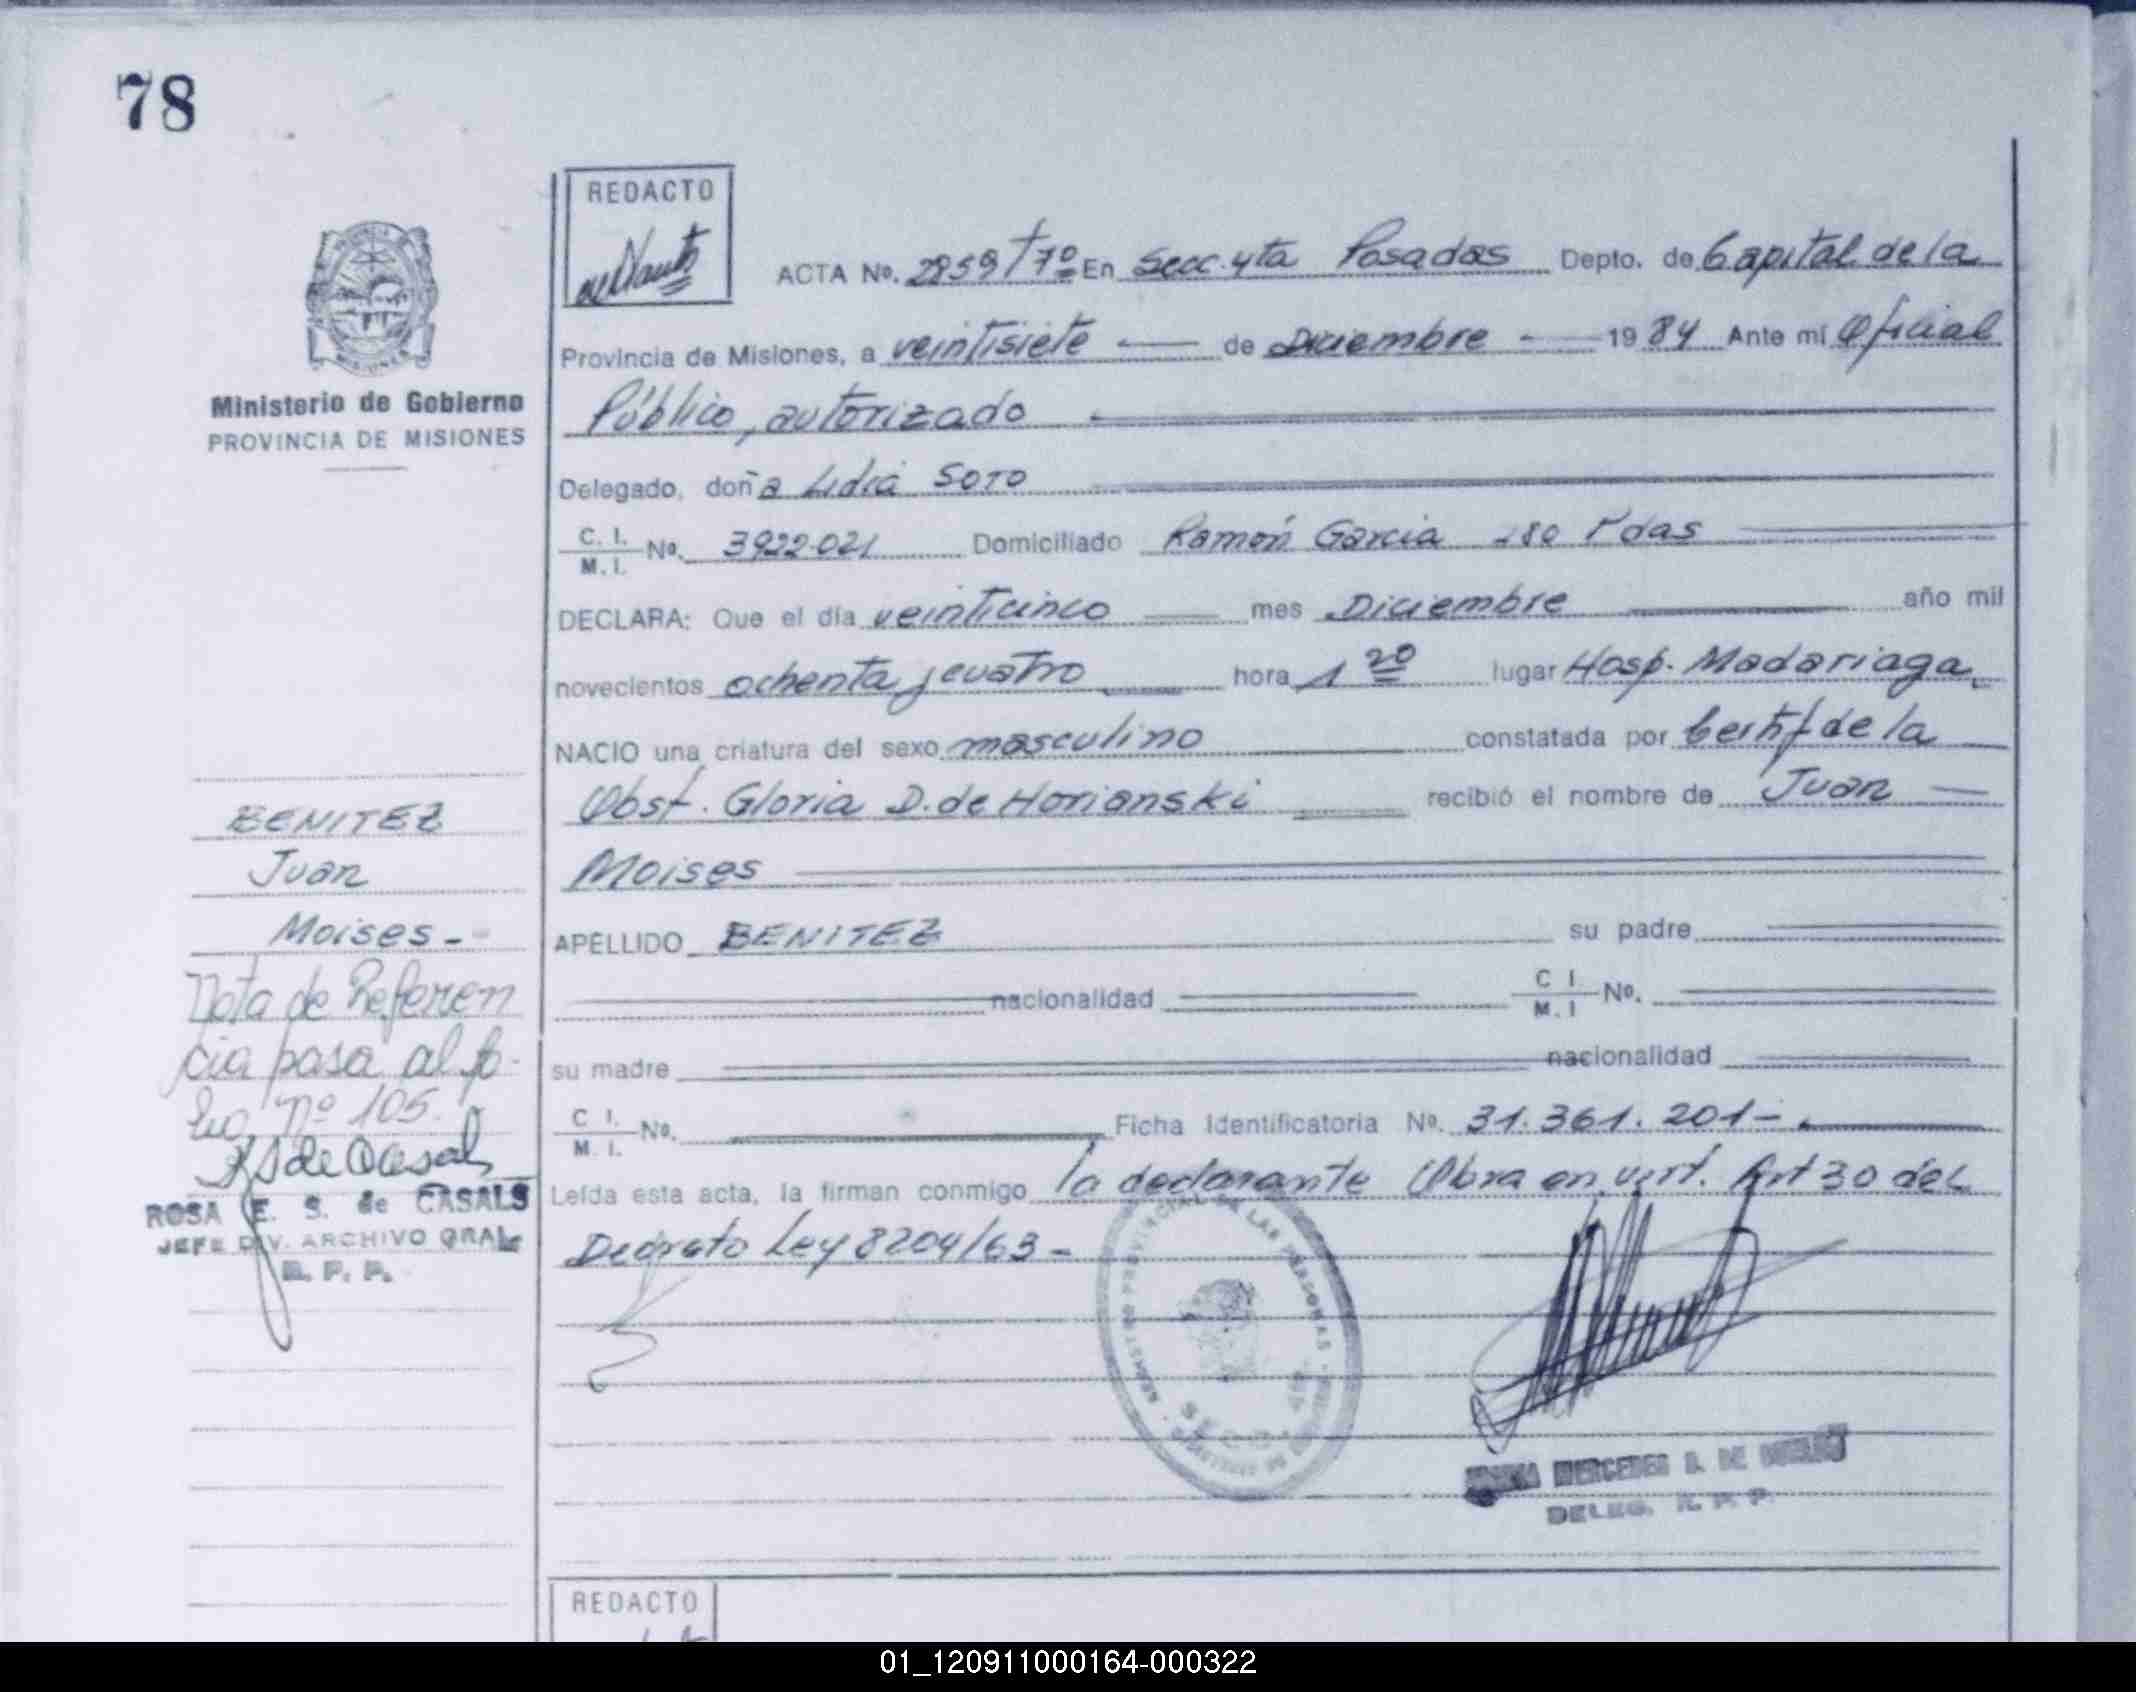 78
REDACTO
ACTA No. 2959 / 7º En Secc. 4ta Posadas Depto. de Capital de la
Provincia de Misiones, a veintisiete de Diciembre 1984 Ante mi Oficial
Ministerio de Gobierno
PROVINCIA DE MISIONES
Público, autorizado
Delegado, doña Lidia SOTO
C. I.
M. I. No. 3922.021 Domiciliado Ramón Garcia 280 Pdas
DECLARA: Que el día veinticinco mes Diciembre año mil
novecientos ochenta y cuatro hora 1 20 lugar Hosp. Madariaga,
NACIO una criatura del sexo masculino constatada por Certif de la
Obst. Gloria D. de Horianski recibió el nombre de Juan
Moises
APELLIDO BENITEZ su padre
nacionalidad C I. M. I No.
su madre nacionalidad
C I. M. I. No. Ficha Identificatoria No. 31.361.201-
Leída esta acta, la firman conmigo la declarante Obra en virt. Art 30 del
Decreto Ley 8204/63 -
BENITEZ
Juan
Moises -
Nota de Referen
cia pasa al fo-
lio nº 105.
RS de Casals
ROSA E. S. de CASALS
JEFE DIV. ARCHIVO GRAL
R. P. P.
REGISTRO PROVINCIAL DE LAS PERSONAS
SECC. 4ta
MERCEDES
DELEG. R. P. P.
REDACTO
01_120911000164-000322